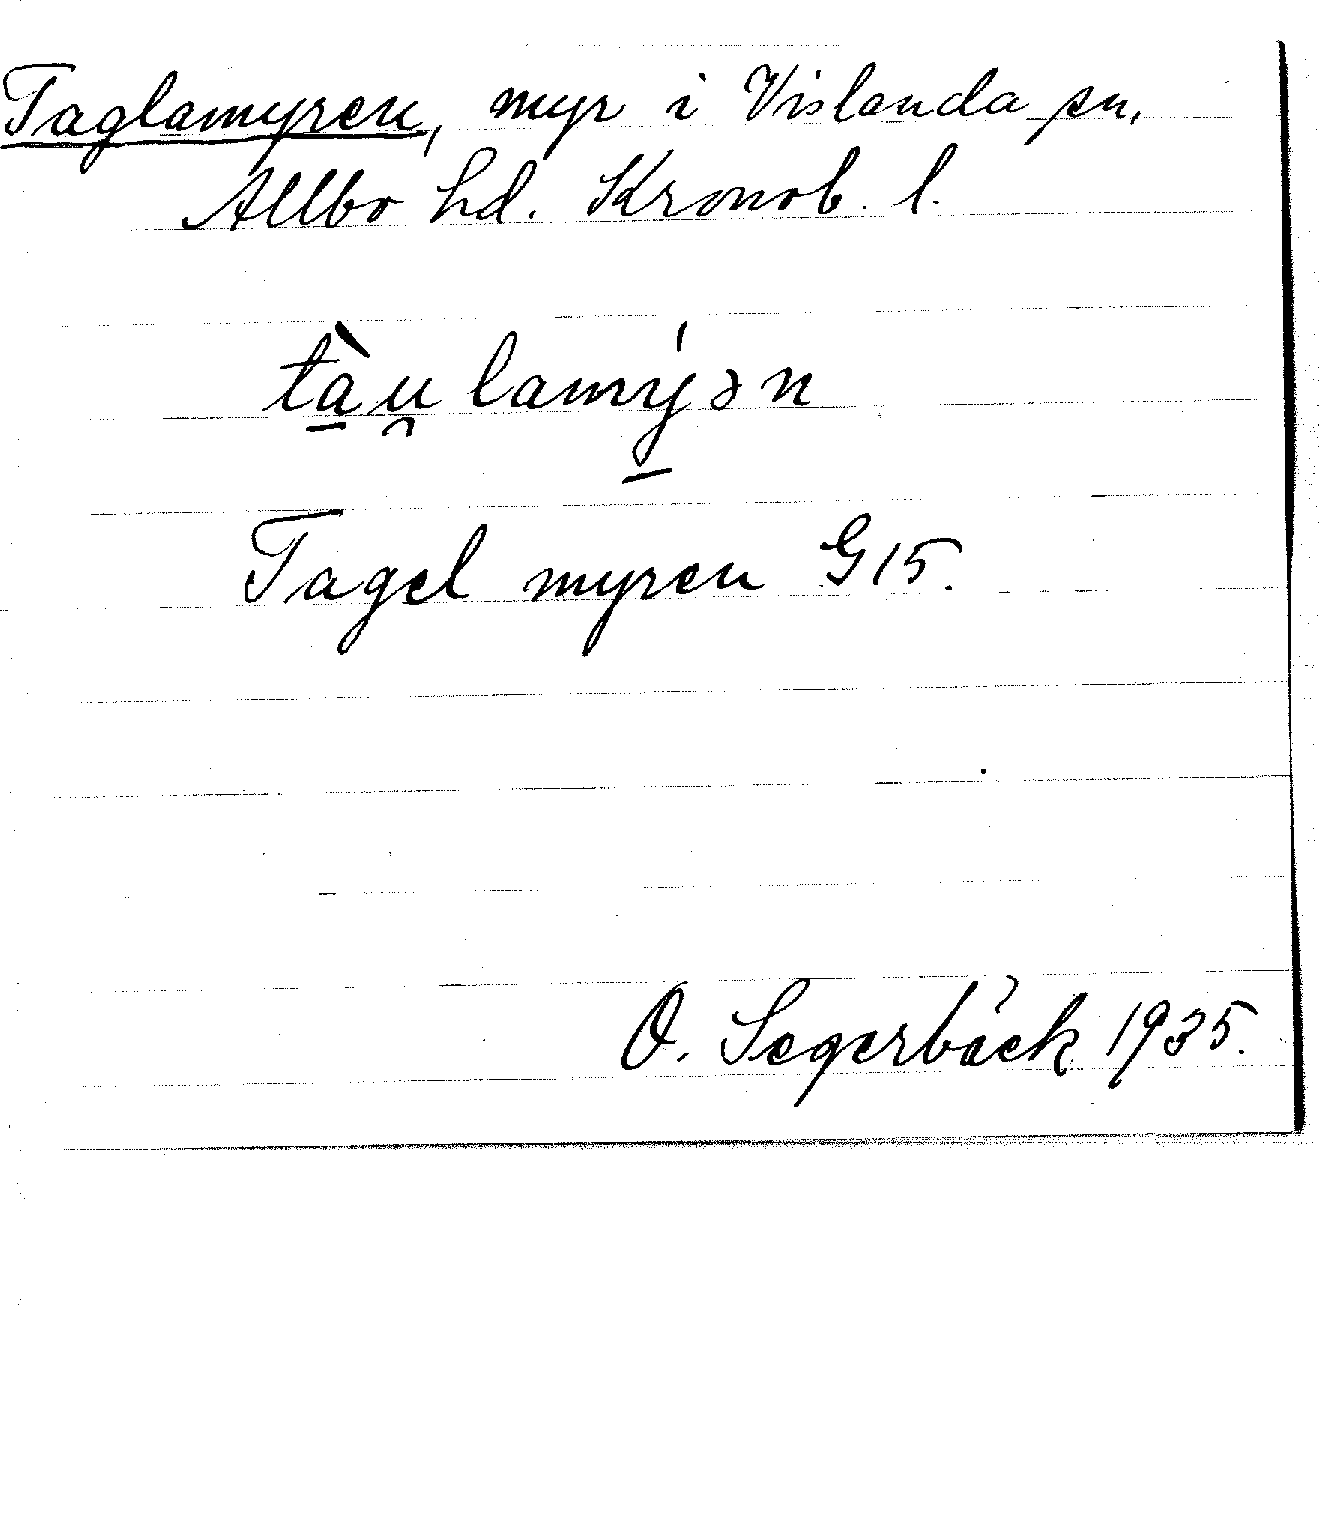 Taglamyren, myr i Vislanda sn,
Allbo hd. Kronob. l.
tà̱u̯lamý̱ən
Tagel myren G15.
O. Segerbäck 1935.